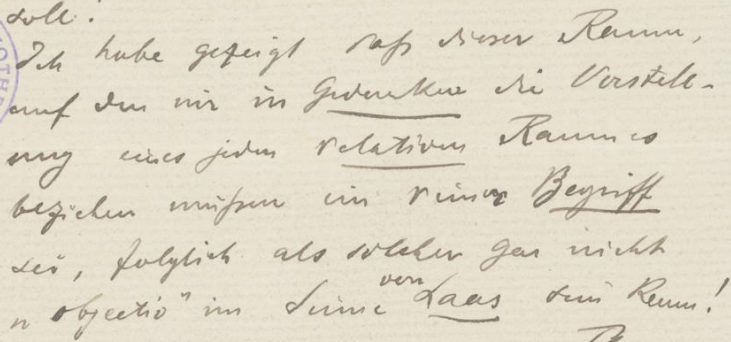 soll!
Ich habe gezeigt daß dieser Raum,
auf den wir in Gedanken die Vorstell-
ung eines jeden relativen Raumes
beziehen müßen ein reiner Begriff
sei, folglich als solcher gar nicht
„objectiv" im Sinne von Laas sein kann!